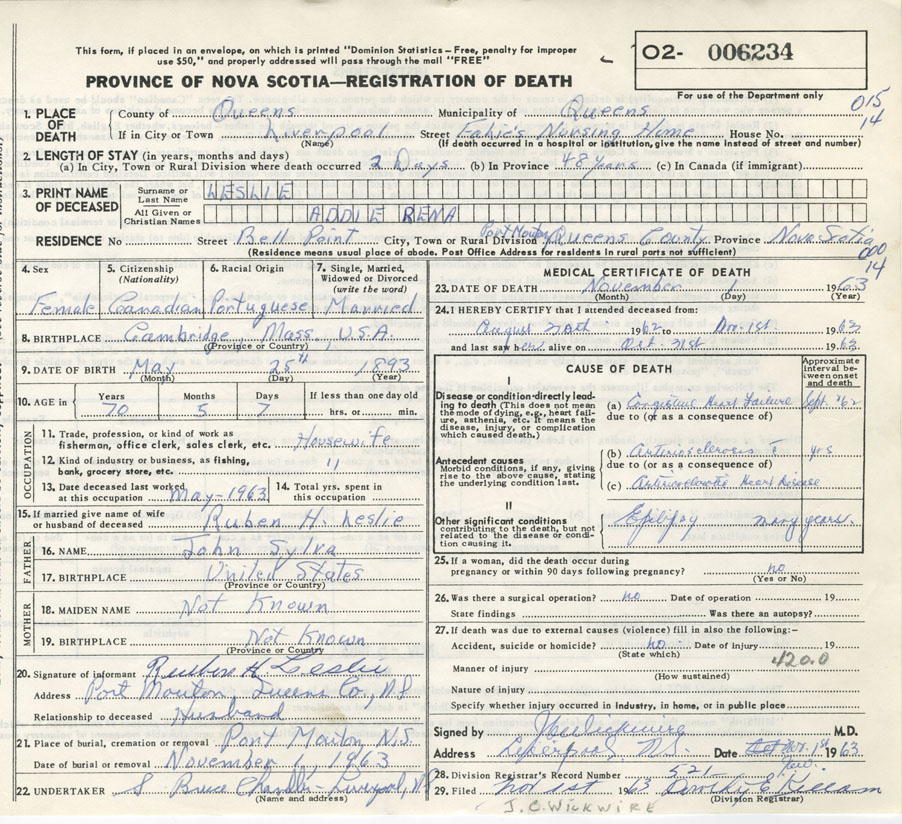 This form, if placed in an envelope, on which is printed "Dominion Statistics — Free, penalty for improper
use $50," and properly addressed will pass through the mail "FREE"
O2- 006234
For use of the Department only
PROVINCE OF NOVA SCOTIA—REGISTRATION OF DEATH
015
14
1. PLACE OF DEATH County of Queens Municipality of Queens
If in City or Town Liverpool Street Nursing Home House No.
(Name) (If death occurred in a hospital or institution, give the name instead of street and number)
2. LENGTH OF STAY (in years, months and days)
(a) In City, Town or Rural Division where death occurred 2 Days (b) In Province 48 years (c) In Canada (if immigrant)
3. PRINT NAME OF DECEASED Surname or Last Name LESLIE
All Given or Christian Names ADDIE RENA
RESIDENCE No Street Bell Point City, Town or Rural Division Port Mouton Queens County Province Nova Scotia
(Residence means usual place of abode. Post Office Address for residents in rural parts not sufficient)
000
14
4. Sex Female
5. Citizenship (Nationality) Canadian
6. Racial Origin Portuguese
7. Single, Married, Widowed or Divorced (write the word) Married
8. BIRTHPLACE Cambridge, Mass., U.S.A.
(Province or Country)
9. DATE OF BIRTH May 25th 1893
(Month) (Day) (Year)
10. AGE in Years Months Days If less than one day old
70 5 7 hrs. or min.
OCCUPATION
11. Trade, profession, or kind of work as
fisherman, office clerk, sales clerk, etc. Housewife
12. Kind of industry or business, as fishing,
bank, grocery store, etc. "
13. Date deceased last worked at this occupation May-1963
14. Total yrs. spent in this occupation
15. If married give name of wife
or husband of deceased Ruben H. Leslie
FATHER
16. NAME John Sylva
17. BIRTHPLACE United States
(Province or Country)
MOTHER
18. MAIDEN NAME Not Known
19. BIRTHPLACE Not Known
(Province or Country)
20. Signature of informant Reuben H Leslie
Address Port Mouton, Queens Co., N.S
Relationship to deceased Husband
21. Place of burial, cremation or removal Port Mouton N.S.
Date of burial or removal November 1, 1963
22. UNDERTAKER S Bruce Chandler - Liverpool, NS
(Name and address)
MEDICAL CERTIFICATE OF DEATH
23. DATE OF DEATH November 1 1963
(Month) (Day) (Year)
24. I HEREBY CERTIFY that I attended deceased from:
August 1962 to Nov. 1st 1963
and last saw her alive on Oct. 31st 1963
CAUSE OF DEATH
Approximate interval between onset and death
I
Disease or condition directly leading to death (This does not mean the mode of dying, e.g., heart failure, asthenia, etc. It means the disease, injury, or complication which caused death.)
(a) Congestive Heart Failure Sept. '62
due to (or as a consequence of)
Antecedent causes
Morbid conditions, if any, giving rise to the above cause, stating the underlying condition last.
(b) Arteriosclerosis yrs
due to (or as a consequence of)
(c) Heart Disease
II
Other significant conditions
contributing to the death, but not related to the disease or condition causing it.
Epilepsy many years.
25. If a woman, did the death occur during
pregnancy or within 90 days following pregnancy? no
(Yes or No)
26. Was there a surgical operation? no Date of operation 19
State findings Was there an autopsy?
27. If death was due to external causes (violence) fill in also the following:-
Accident, suicide or homicide? no Date of injury 19
(State which)
420.0
Manner of injury
(How sustained)
Nature of injury
Specify whether injury occurred in industry, in home, or in public place
Signed by J C Wickwire M.D.
Address Liverpool N.S. Date Nov. 1st 1963
28. Division Registrar's Record Number 521
29. Filed Nov 1st 1963 Dorothy E Killam
(Division Registrar)
J. C. WICKWIRE